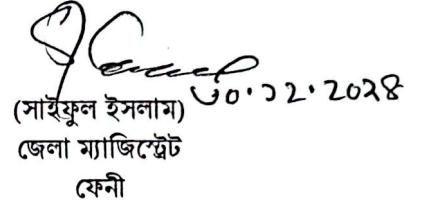 ৩০.১২.২০২৪
(সাইফুল ইসলাম)
জেলা ম্যাজিস্ট্রেট
ফেনী